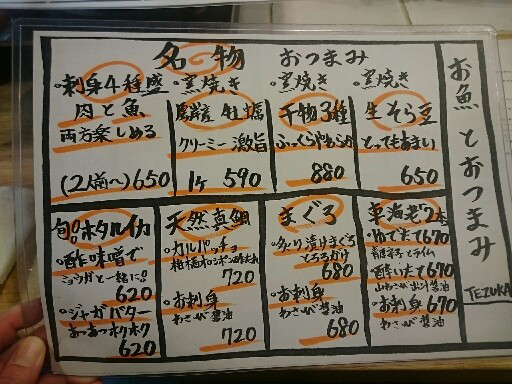 お魚とおつまみ
TEZUKA
名物 おつまみ
・刺身4種盛
肉と魚、
両方楽しめる
(2人前〜)650
・窯焼き
牡蠣
クリーミー激旨
1ケ 590
・窯焼き
干物3種
ふっくらやわらか
880
・窯焼き
生そら豆
とってもあまい
650
旬!!ホタルイカ
・酢味噌で
ミョウガと一緒に!!
620
・ジャガバター
あつあつホクホク
620
天然真鯛
・カルパッチョ
柑橘系ポン酢だれ
720
・お刺身
わさび醤油
720
まぐろ
・炙り漬けまぐろ
とろろがけ
680
・お刺身
わさび醤油
680
車海老2本
・ゆで来て670
・酔いたて670
・お刺身670
わさび醤油